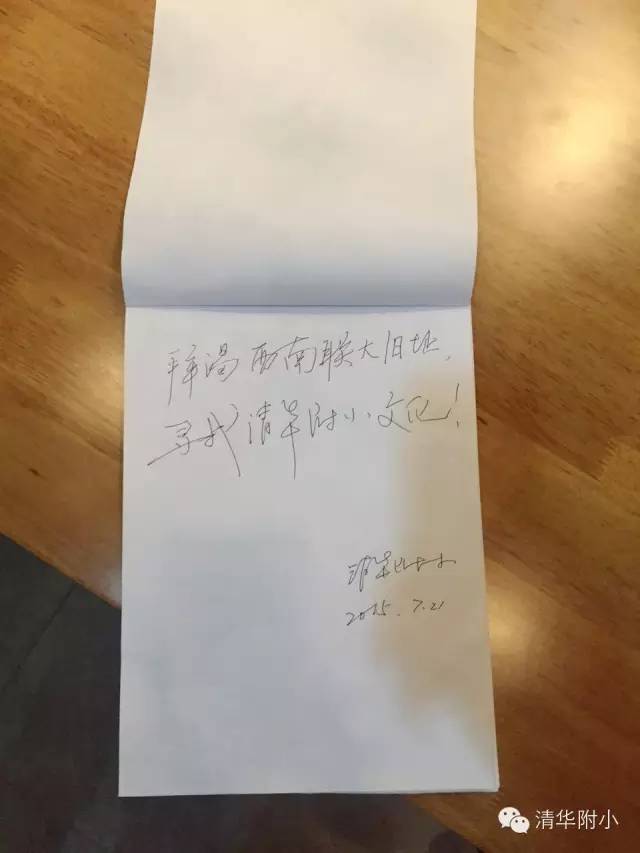 拜谒西南联大旧址,
寻找清华附小文化!
清华附小
2015.7.21
清华附小